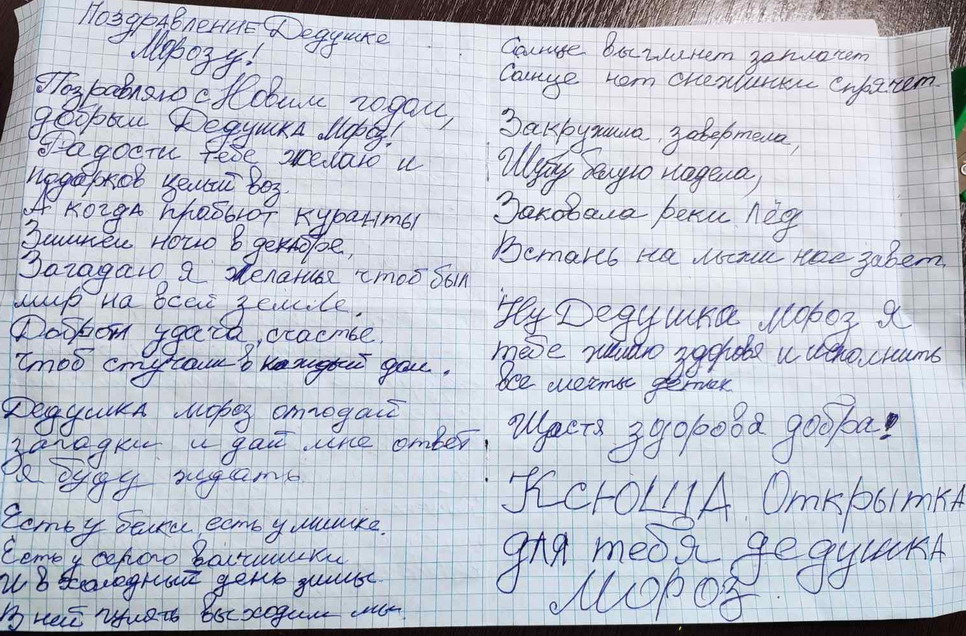 Поздравление Дедушке
Морозу!
Позравляю с Новим годом,
добрый Дедушка Мороз!
Радости тебе желаю и
подарков целый воз.
А когда прабьют куранты
Зимней ночю в декабре,
Загадаю я желанье чтоб был
мир на всей земле.
Доброта удача, счастье.
чтоб стучали в каждый дом.
Дедушка мороз отгодай
загадки и дай мне ответ
я буду ждать
Есть у белки, есть у мишке.
Есть у серого волчишки
И в холодный день зимы
В ней гулять выходим мы.
Солнце выглянет заплачет
Солнце нет снежинки спрячет.
Закружила, завертела,
Шубу белую надела,
Заковала реки лёд
Встань на лыжи нас завет.
Ну Дедушка мороз я
тебе жилаю здоровя и исполнить
все мечты деток
Щастя здорова добра!
Ксюша Открытка
для тебя дедушка
Мороз.